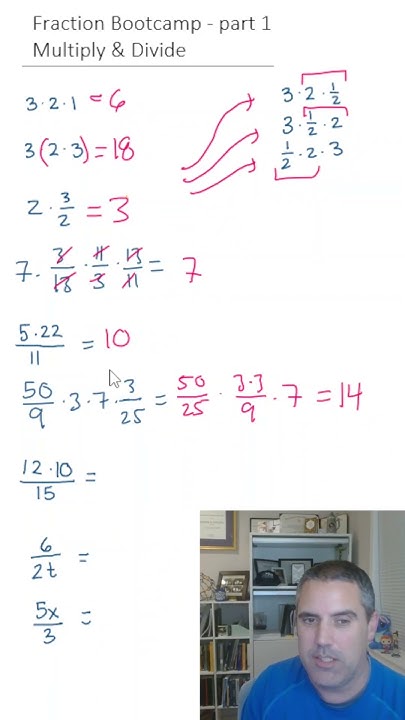 Fraction Bootcamp - part 1
Multiply & Divide
3·2·1 = 6
3·2·½
3·½·2
½·2·3
3(2·3) = 18
2·3/2 = 3
7·3/13·11/3·13/11 = 7
5·22/11 = 10
50/9·3·7·3/25 = 50/25·3·3/9·7 = 14
12·10/15 =
6/2t =
5x/3 =